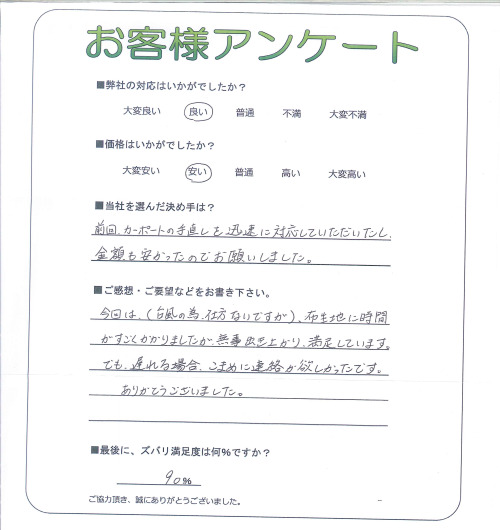 お客様アンケート
■弊社の対応はいかがでしたか？
大変良い 良い 普通 不満 大変不満
■価格はいかがでしたか？
大変安い 安い 普通 高い 大変高い
■当社を選んだ決め手は？
前回、カーポートの手直しを迅速に対応していただいたし、
金額も安かったのでお願いしました。
■ご感想・ご要望などをお書き下さい。
今回は、(台風の為、仕方ないですが)、布生地に時間
がすごくかかりましたが、無事出き上がり、満足しています。
でも、遅れる場合、こまめに連絡が欲しかったです。
ありがとうございました。
■最後に、ズバリ満足度は何%ですか？
90%
ご協力頂き、誠にありがとうございました。